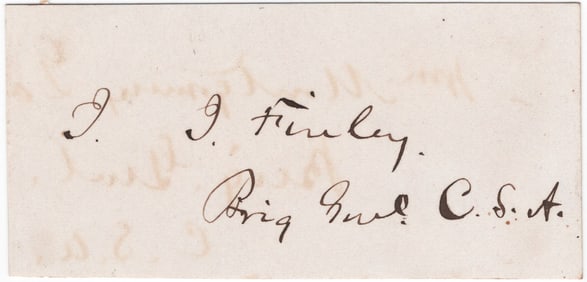 J. J. Finley.
Brig Genl. C. S. A.